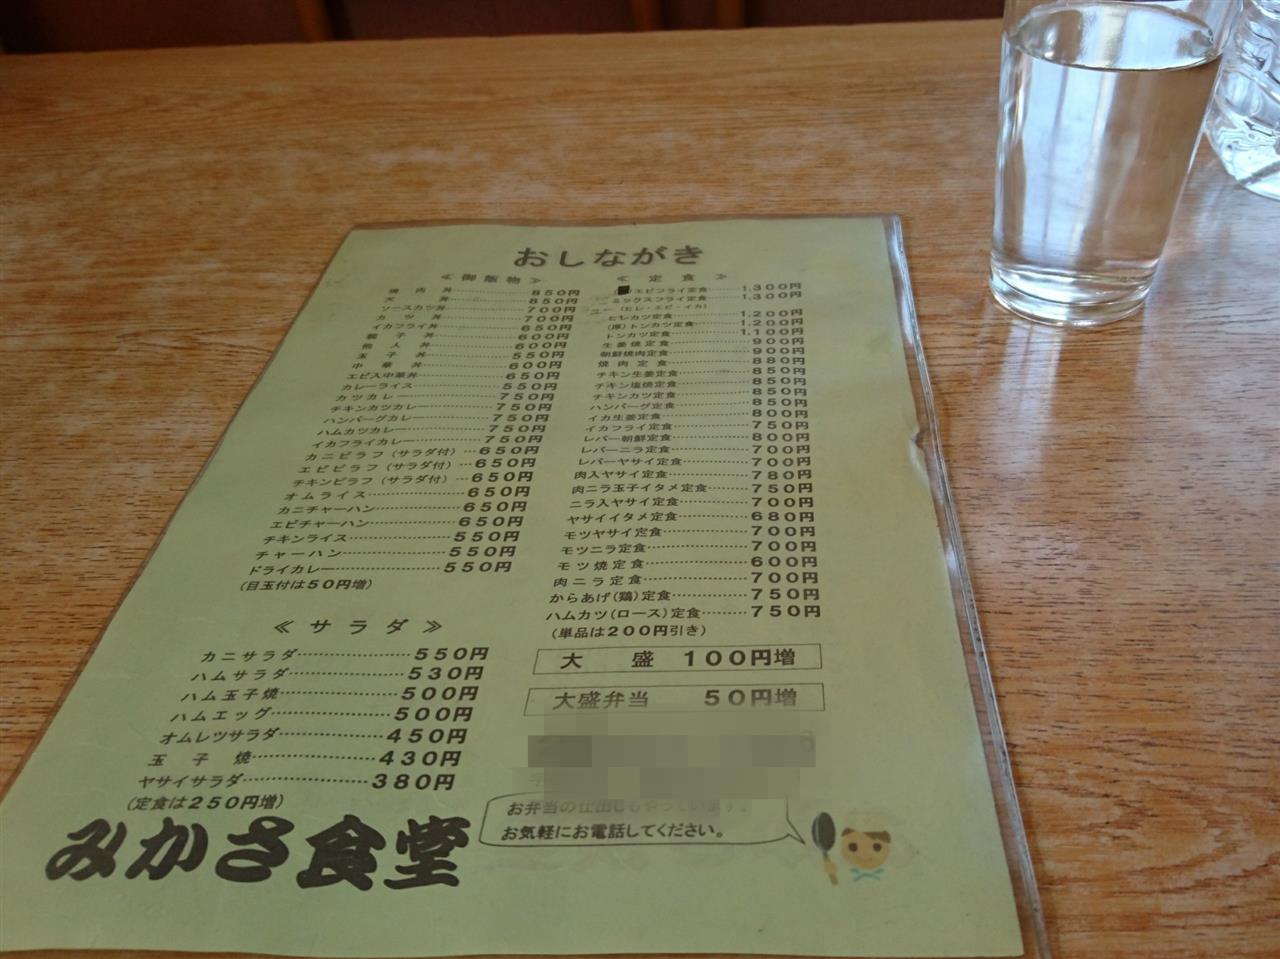 おしながき
≪御飯物≫
焼肉丼 850円
天丼 850円
ソースカツ丼 700円
カツ丼 700円
イカフライ丼 650円
親子丼 600円
他人丼 600円
玉子丼 550円
中華丼 600円
エビ入中華丼 650円
カレーライス 550円
カツカレー 750円
チキンカツカレー 750円
ハンバーグカレー 750円
ハムカツカレー 750円
イカフライカレー 750円
カニピラフ(サラダ付) 650円
エビピラフ(サラダ付) 650円
チキンピラフ(サラダ付) 650円
オムライス 650円
カニチャーハン 650円
エビチャーハン 650円
チキンライス 550円
チャーハン 550円
ドライカレー 550円
(目玉付は50円増)
≪サラダ≫
カニサラダ 550円
ハムサラダ 530円
ハム玉子焼 500円
ハムエッグ 500円
オムレツサラダ 450円
玉子焼 430円
ヤサイサラダ 380円
(定食は250円増)
≪定食≫
エビフライ定食 1,300円
ミックスフライ定食 1,300円
(ヒレ・エビ・イカ)
ヒレカツ定食 1,200円
(厚)トンカツ定食 1,200円
トンカツ定食 1,100円
生姜焼定食 900円
朝鮮焼肉定食 900円
焼肉定食 880円
チキン生姜定食 850円
チキン塩焼定食 850円
チキンカツ定食 850円
ハンバーグ定食 850円
イカ生姜定食 800円
イカフライ定食 750円
レバー朝鮮定食 800円
レバーニラ定食 700円
レバーヤサイ定食 700円
肉入ヤサイ定食 780円
肉ニラ玉子イタメ定食 750円
ニラ入ヤサイ定食 700円
ヤサイイタメ定食 680円
モツヤサイ定食 700円
モツニラ定食 700円
モツ焼定食 600円
肉ニラ定食 700円
からあげ(鶏)定食 750円
ハムカツ(ロース)定食 750円
(単品は200円引き)
大盛 100円増
大盛弁当 50円増
お弁当の仕出しもやっています。
お気軽にお電話してください。
みかさ食堂